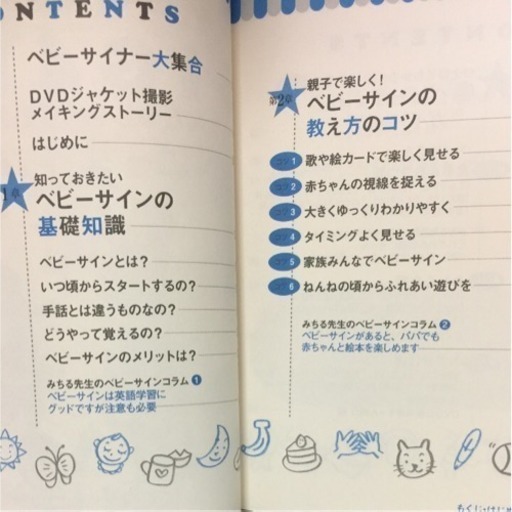 ONTENTS
ベビーサイナー大集合
DVDジャケット撮影
メイキングストーリー
はじめに
1章
知っておきたい
ベビーサインの
基礎知識
ベビーサインとは?
いつ頃からスタートするの?
手話とは違うものなの?
どうやって覚えるの?
ベビーサインのメリットは?
みちる先生のベビーサインコラム 1
ベビーサインは英語学習に
グッドですが注意も必要
第2章
親子で楽しく!
ベビーサインの
教え方のコツ
コツ1 歌や絵カードで楽しく見せる
コツ2 赤ちゃんの視線を捉える
コツ3 大きくゆっくりわかりやすく
コツ4 タイミングよく見せる
コツ5 家族みんなでベビーサイン
コツ6 ねんねの頃からふれあい遊びを
みちる先生のベビーサインコラム 2
ベビーサインがあると、パパでも
赤ちゃんと絵本を楽しめます